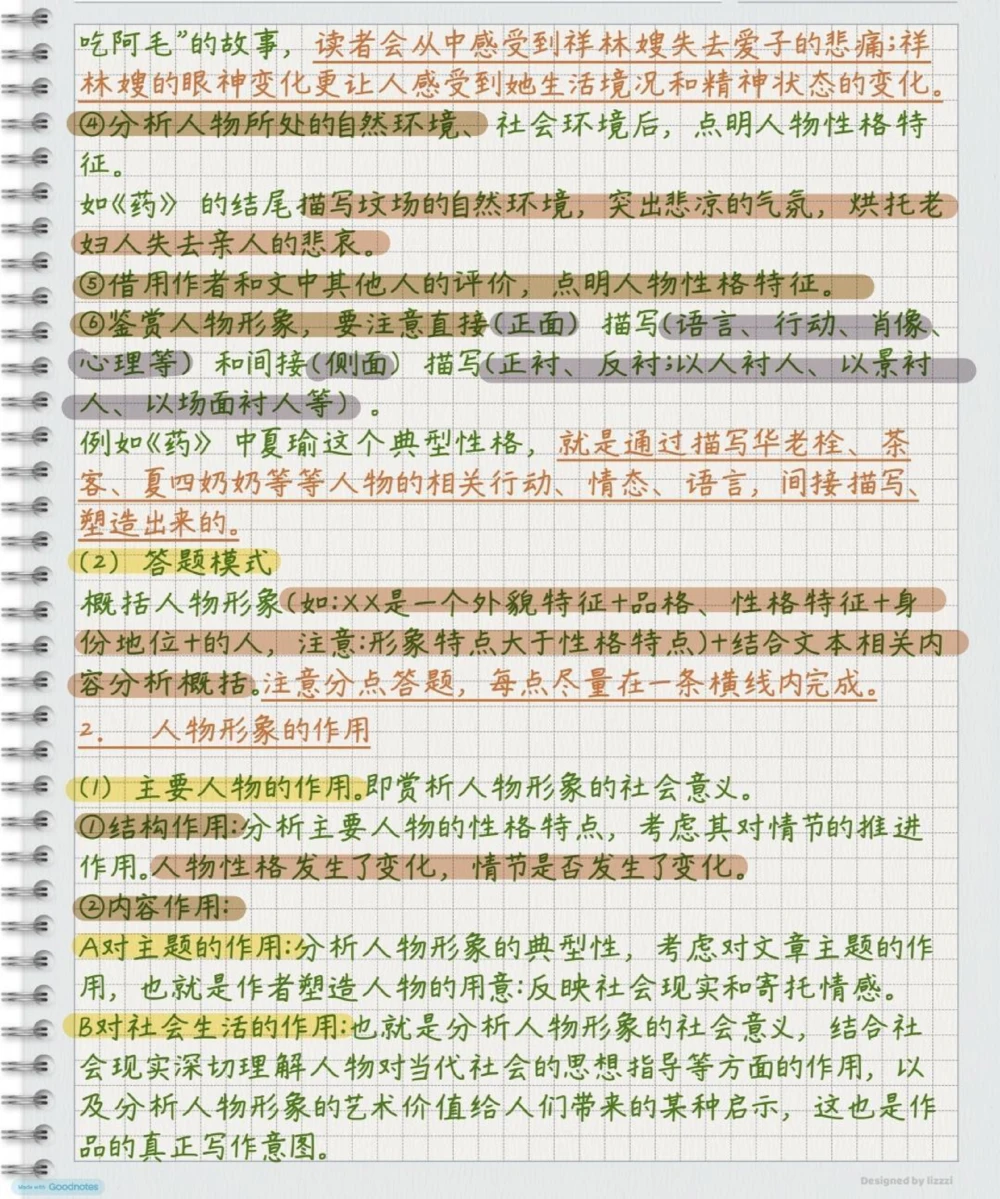 吃阿毛”的故事，读者会从中感受到祥林嫂失去爱子的悲痛;祥
林嫂的眼神变化更让人感受到她生活境况和精神状态的变化。
④分析人物所处的自然环境、社会环境后，点明人物性格特
征。
如《药》 的结尾描写坟场的自然环境，突出悲凉的气氛，烘托老
妇人失去亲人的悲哀。
⑤借用作者和文中其他人的评价，点明人物性格特征。
⑥鉴赏人物形象，要注意直接(正面) 描写(语言、行动、肖像、
心理等) 和间接(侧面) 描写(正衬、反衬;以人衬人、以景衬
人、以场面衬人等) 。
例如《药》 中夏瑜这个典型性格，就是通过描写华老栓、茶
客、夏四奶奶等等人物的相关行动、情态、语言，间接描写、
塑造出来的。
(2) 答题模式
概括人物形象(如:XX是一个外貌特征+品格、性格特征+身
份地位+的人，注意:形象特点大于性格特点)+结合文本相关内
容分析概括。注意分点答题，每点尽量在一条横线内完成。
2. 人物形象的作用
(1) 主要人物的作用。即赏析人物形象的社会意义。
①结构作用:分析主要人物的性格特点，考虑其对情节的推进
作用。人物性格发生了变化，情节是否发生了变化。
②内容作用:
A对主题的作用:分析人物形象的典型性，考虑对文章主题的作
用，也就是作者塑造人物的用意:反映社会现实和寄托情感。
B对社会生活的作用:也就是分析人物形象的社会意义，结合社
会现实深切理解人物对当代社会的思想指导等方面的作用，以
及分析人物形象的艺术价值给人们带来的某种启示，这也是作
品的真正写作意图。
Made with Goodnotes
Designed by lizzzi